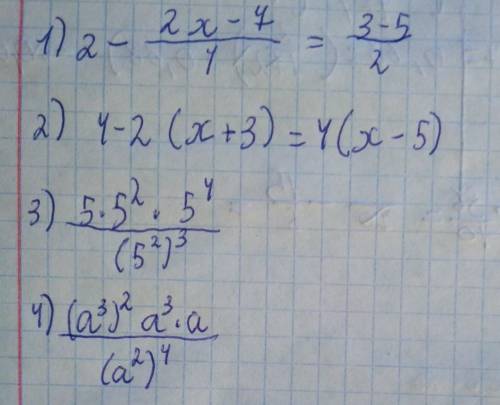 1) 2 - (2x - 7)/4 = (3 - 5)/2
2) 4 - 2 (x + 3) = 4 (x - 5)
3) (5 · 5² · 5⁴)/(5²)³
4) ((a³)² a³ · a)/(a²)⁴